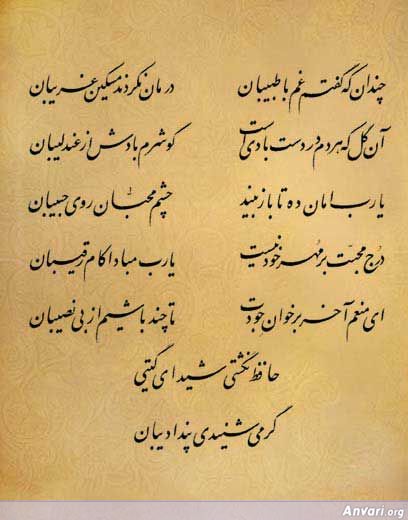 چندان که گفتم غم با طبیبان درمان نکردند مسکین غریبان
آن گل که هر دم در دست بادیست گو شرم بادش از عندلیبان
یارب امان ده تا باز بیند چشم محبان روی حبیبان
درج محبت بر مهر خود نیست یارب مبادا کام رقیبان
ای منعم آخر بر خوان جودت تا چند باشیم از بی نصیبان
حافظ نگشتی شیدای گیتی
گر می شنیدی پند ادیبان
Anvari.org